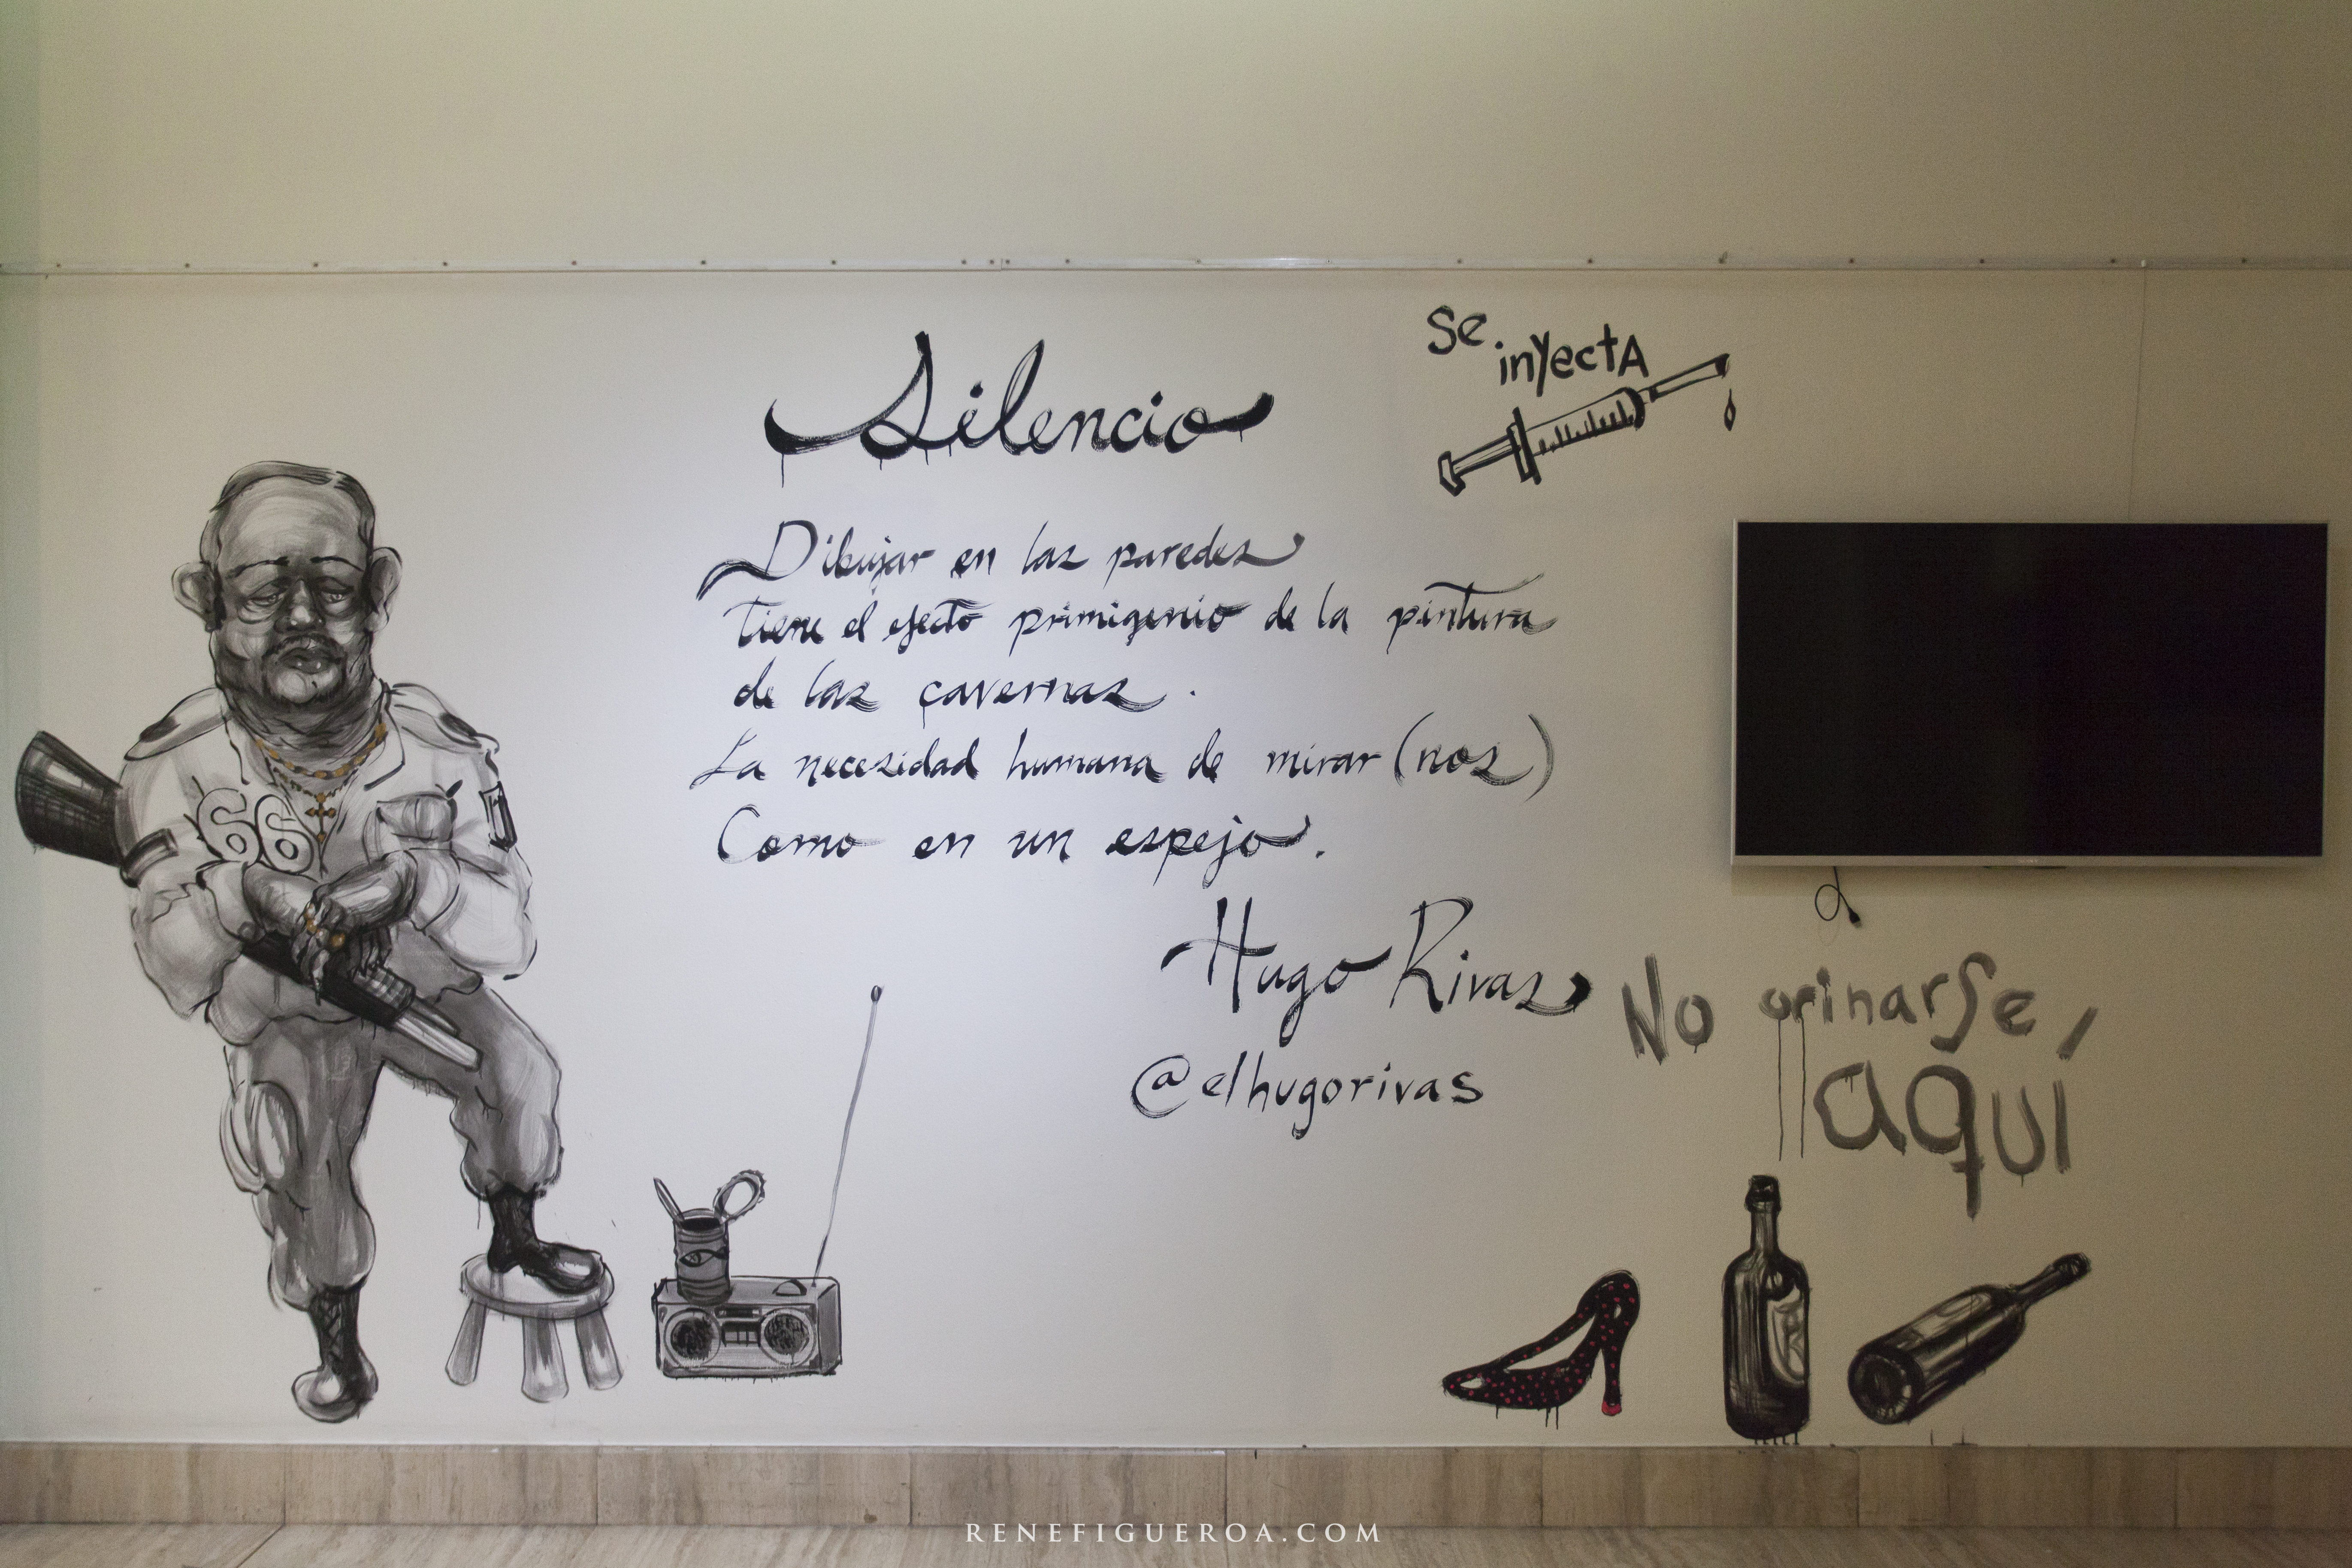 Silencio
Dibujar en las paredes
tiene el efecto primigenio de la pintura
de las cavernas.
La necesidad humana de mirar(nos)
Como en un espejo.
Hugo Rivas
@elhugorivas
Se
inyectA
No orinarse,
aquí
66
RENEFIGUEROA.COM